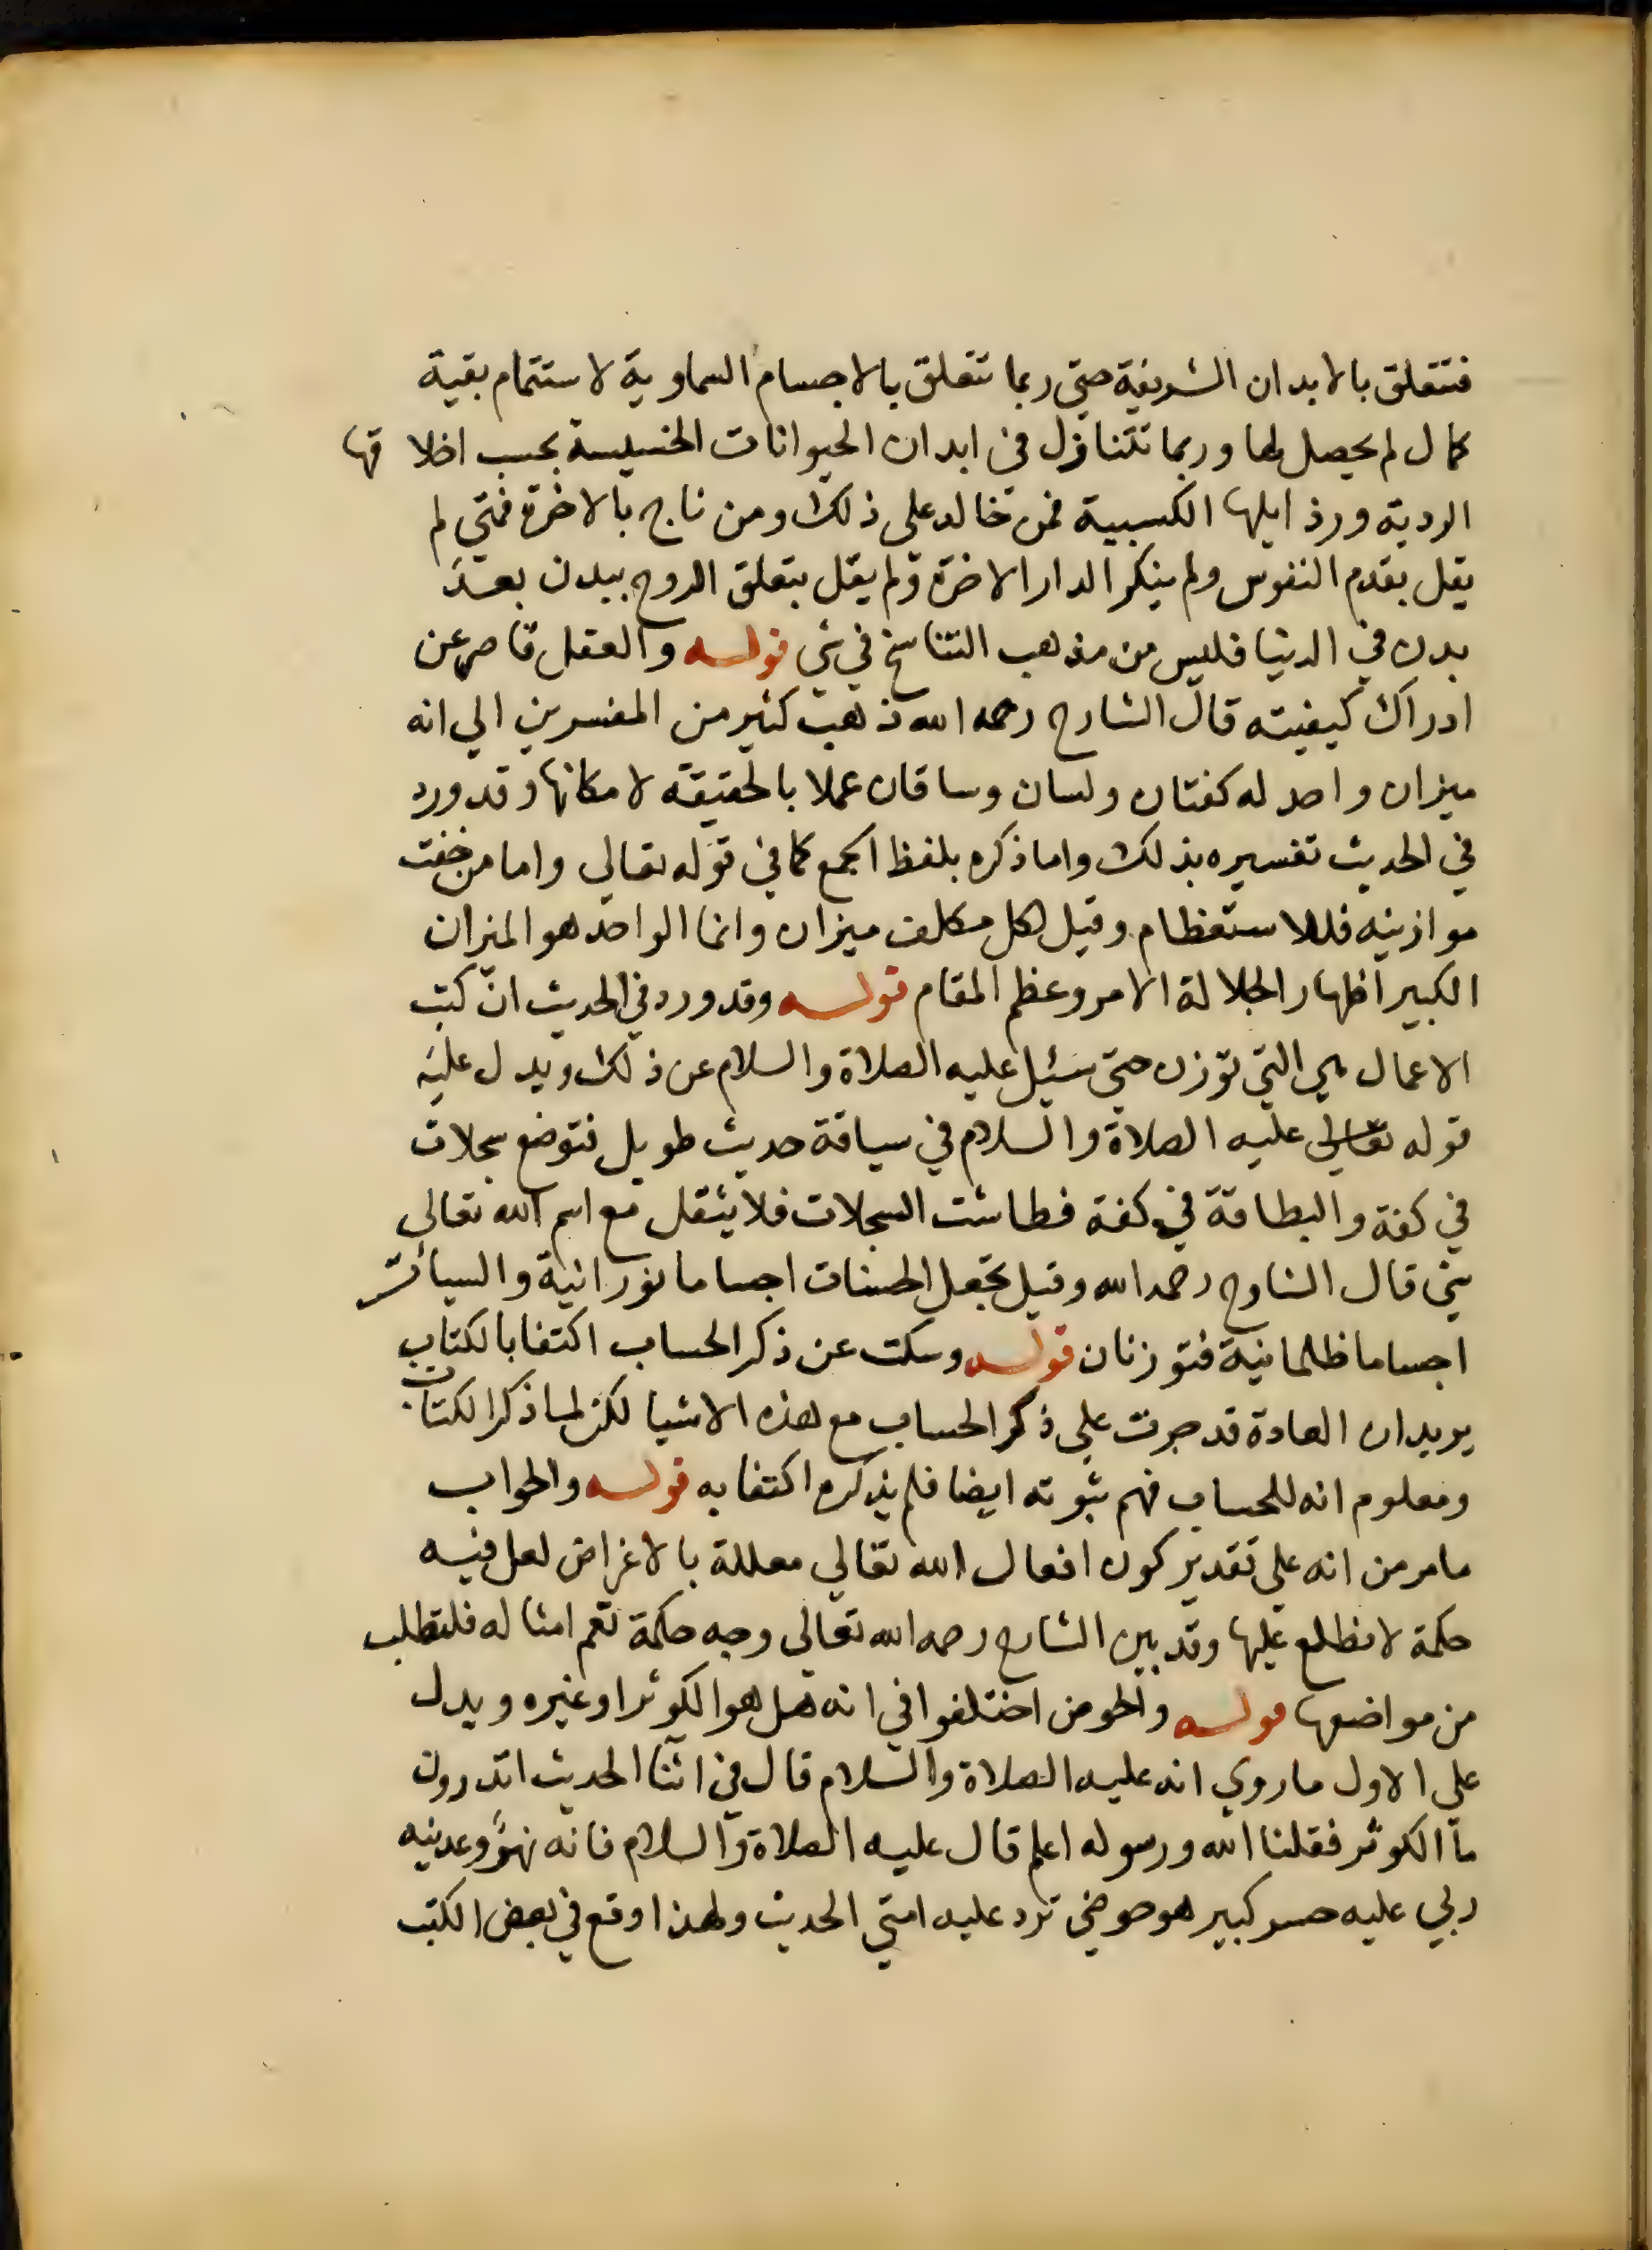 فتتعلق بالابدان الشريفة حتى ربما تتعلق بالاجسام السماوية لاستتمام بقية
كمال لم يحصل لها وربما تتنازل في ابدان الحيوانات الخسيسة بحسب اخلاقها
الردية ورذايلها الكسبية فمن خالد على ذلك ومن ناج بالاخرة فمتى لم
يقل بقدم النفوس ولم ينكر الدار الاخرة ولم يقل بتعلق الروح ببدن بعد
بدن في الدنيا فليس من مذهب التناسخ في شي قولـه والعقل قاصر عن
ادراك كيفيته قال الشارح رحمه الله ذهب كثير من المفسرين الي انه
ميزان واحد له كفتان ولسان وساقان عملا بالحقيقة لامكانها وقد ورد
في الحديث تفسيره بذلك واما ذكره بلفظ الجمع كما في قوله تعالي واما من خفت
موازينه فللاستعظام وقيل لكل مكلف ميزان وانما الواحد هو الميزان
الكبير اظهارا لجلالة الامر وعظم المقام قولـه وقد ورد في الحديث ان كتب
الاعمال هي التي توزن حتى سئيل عليه الصلاة والسلام عن ذلك ويدل عليه
قوله تعالى عليه الصلاة والسلام في سياقة حديث طويل فتوضع سجلات
في كفة والبطاقة في كفة فطاشت السجلات فلا يثقل مع اسم الله تعالى
شي قال الشارح رحمه الله وقيل تجعل الحسنات اجساما نورانية والسيأت
اجساما ظلمانية فتوزنان قولـه وسكت عن ذكر الحساب اكتفا بالكتاب
يريد ان العادة قد جرت علي ذكر الحساب مع هذه الاشيا لكن لما ذكر الكتاب
ومعلوم انه للحساب فهم ثبوته ايضا فلم يذكره اكتفا به قولـه والجواب
مامر من انه علي تقدير كون افعال الله تعالي معللة بالاغراض لعل فيه
حكمة لا نطلع عليها وقد بين الشارح رحمه الله تعالى وجه حكمة تعم امثاله فلتطلب
من مواضعها قولـه والحوض اختلفوا في انه هل هو الكوثر او غيره ويدل
علي الاول ما روي انه عليه الصلاة والسلام قال في اثنا الحديث اتدرون
ما الكوثر فقلنا الله ورسوله اعلم قال عليه الصلاة والسلام فانه نهر وعدنيه
ربي عليه خير كبير هو حوضي ترد عليه امتي الحديث ولهذا وقع في بعض الكتب